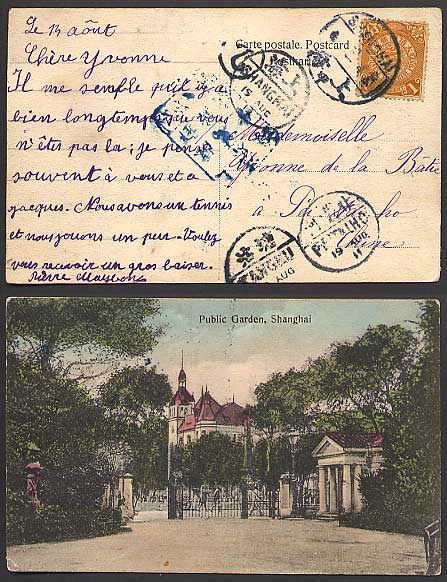 Le 13 août
Chère Yvonne
Il me semble qu'il y a
bien longtemps que vous
n'êtes pas là; je pense
souvent à vous et à
Jacques. Nous avons un tennis
et nous jouons un peu. Voulez
vous recevoir un gros baiser.
Pierre
Carte postale. Postcard
Postkarte
Mademoiselle
Yvonne de la Batie
à Pei ho
Chine
SHANGHAI
15 AUG
SHANGHAI
PEITAIHO
19 AUG 11
AUG
1
Public Garden, Shanghai